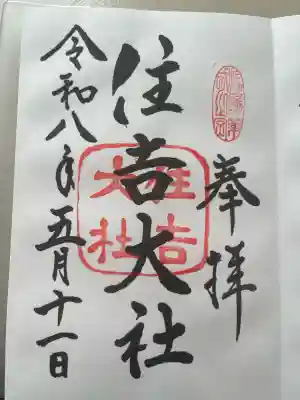 奉拝
住吉大社
住吉大社
令和八年五月十一日